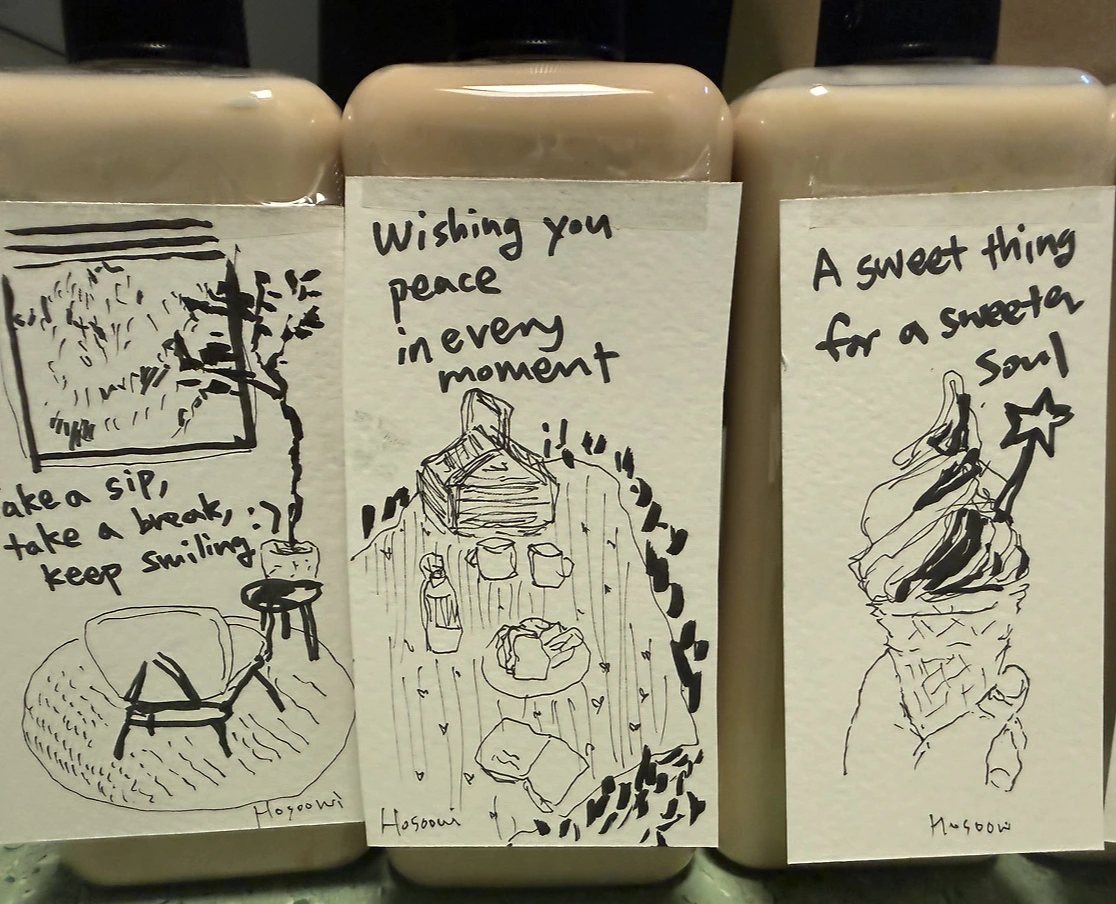 ake a sip,
take a break, :)
keep smiling
Hosoowi
Wishing you
peace
in every
moment
Hosoowi
A sweet thing
for a sweeter
soul
Hosoowi